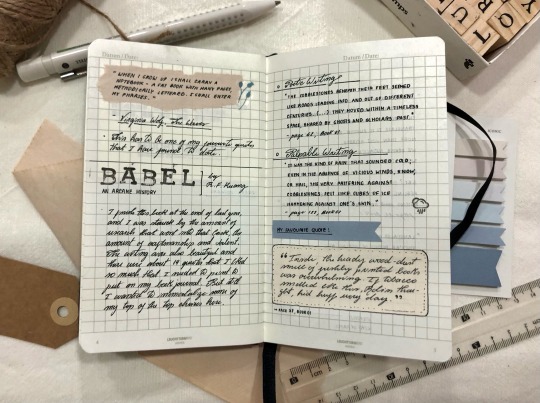 Datum / Date:
"WHEN I GROW UP I SHALL CARRY A
NOTEBOOK - A FAT BOOK WITH MANY PAGES,
METHODICALLY LETTERED. I SHALL ENTER
MY PHRASES."
- Virginia Wolf, The Waves
This has to be one of my favourite quotes
that I have journal to date.
BABEL
AN ARCANE HISTORY
by
R.F. Kuang
I finish this book at the end of last year,
and I was stunned by the amount of
research that went into that book, the
amount of craftsmanship and talent.
The writing was also beautiful and
there were about 19 quotes that I liked
so much that I needed to
put on my book journal. But still
I wanted to immortalize some of
my top of the top choices here.
Datum / Date:
Poetic Writing
"THE COBBLESTONES BENEATH THEIR FEET SEEMED
LIKE ROADS LEADING INTO AND OUT OF DIFFERENT
CENTURIES. (...) THEY MOVED WITHIN A TIMELESS
SPACE, SHARED BY GHOSTS AND SCHOLARS PAST."
- page 62, BOOK I
Palpable Writing
"IT WAS THE KIND OF RAIN THAT SOUNDED COLD;
EVEN IN THE ABSENCE OF VICIOUS WINDS, SNOW,
OR HAIL, THE VERY PATTERING AGAINST
COBBLESTONES FELT LIKE CUBES OF ICE
HAPPENING AGAINST ONE'S SKIN."
MY FAVOURITE QUOTE!
"Inside, the heady wood-dust
smell of freshly printed books
was overwhelming. If tobacco
smelled like this, Robin thou-
ght he'd huff it every day."